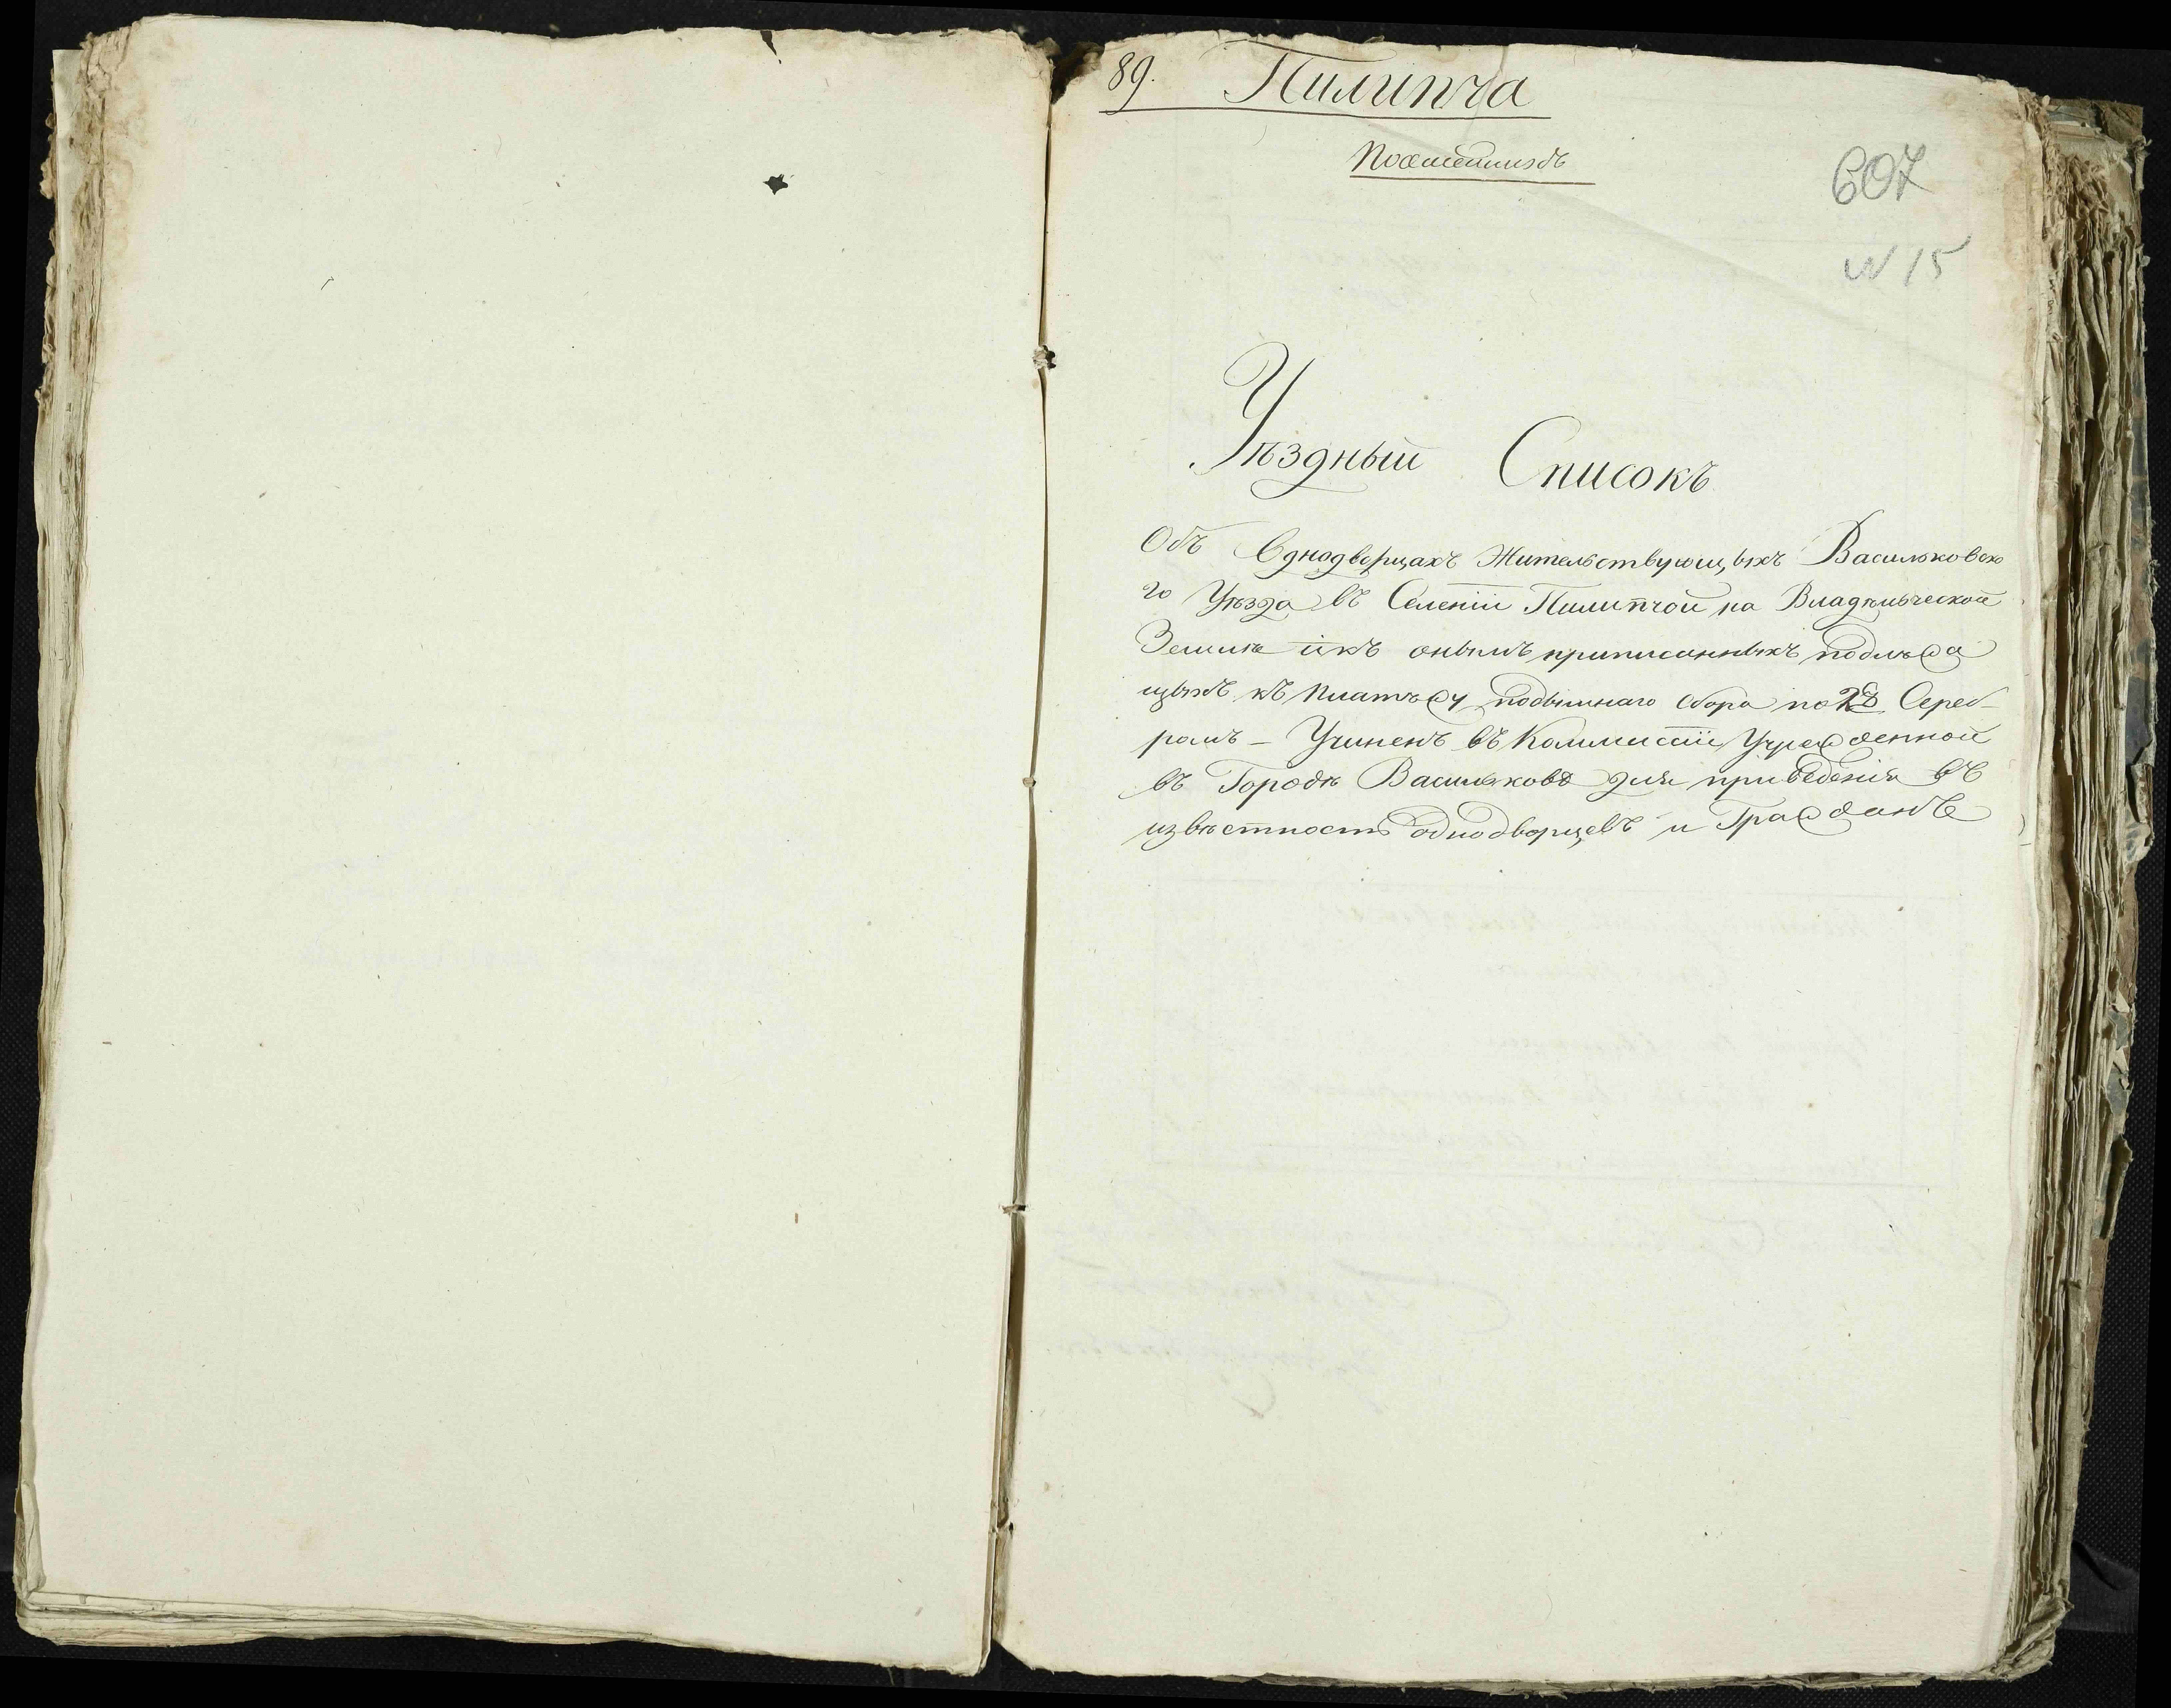 89. Пилипча
607
N 15
Уѣздный Списокъ
Объ Однодворцахъ Жительствующихъ Васильковска
го Уѣзда въ Селеніи Пилипчой на Владѣльческой
Землѣ икъ онымъ приписанныхъ подлежа
щихъ къ платежу подымнаго сбора по Сереб-
ромъ – Учиненъ въ Коммисіи Учрежденной
въ Городѣ Васильковѣ для приведенія въ
извѣстность однодворцевъ и Гражданъ